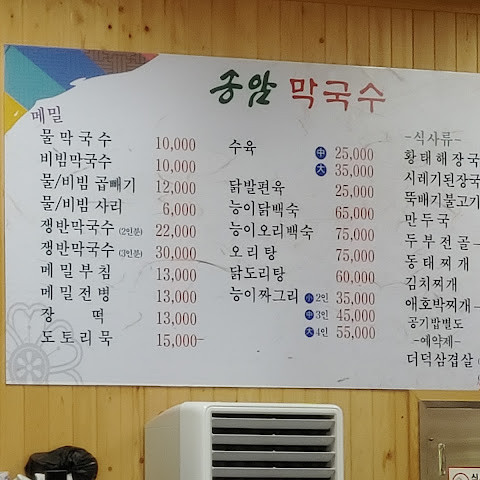 송암 막국수
메밀
물막국수 10,000
비빔막국수 10,000
물/비빔 곱빼기 12,000
물/비빔 사리 6,000
쟁반막국수 (2인분) 22,000
쟁반막국수 (3인분) 30,000
메밀부침 13,000
메밀전병 13,000
장 떡 13,000
도토리묵 15,000-
수육 中 25,000
大 35,000
닭발편육 25,000
능이닭백숙 65,000
능이오리백숙 75,000
오리탕 75,000
닭도리탕 60,000
능이짜그리 小 2인 35,000
中 3인 45,000
大 4인 55,000
-식사류-
황태해장국
시레기된장국
뚝배기불고기
만두국
두부전골-
동태찌개
김치찌개
애호박찌개-
공기밥별도
-예약제-
더덕삼겹살